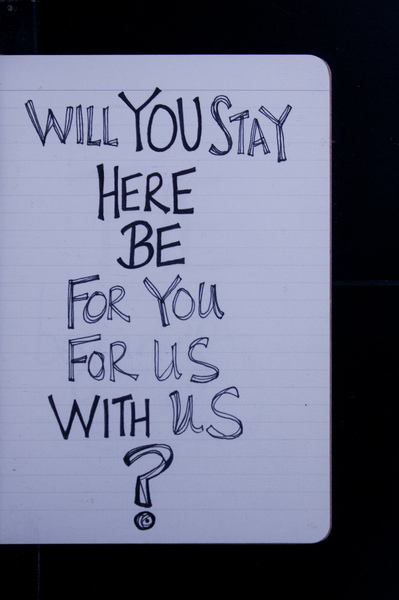 WILL YOU STAY
HERE
BE
FOR YOU
FOR US
WITH US
?